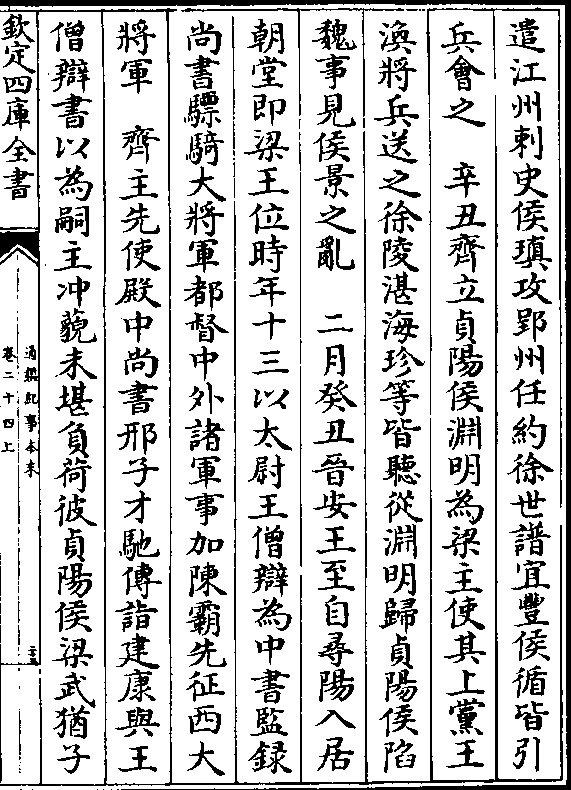 遣江州刺史侯瑱攻郢州任約徐世譜宜豐侯循皆引
兵會之　辛丑齊立貞陽侯淵明為梁主使其上黨王
渙將兵送之徐陵湛海珍等皆聽從淵明歸貞陽侯陷
魏事見侯景之亂　二月癸丑晉安王至自尋陽入居
朝堂即梁王位時年十三以太尉王僧辯為中書監録
尚書驃騎大將軍都督中外諸軍事加陳霸先征西大
將軍　齊主先使殿中尚書邢子才馳傳詣建康與王
僧辯書以為嗣主冲藐未堪負荷彼貞陽侯梁武猶子
欽定四庫全書
通鑑紀事本末
卷二十四上